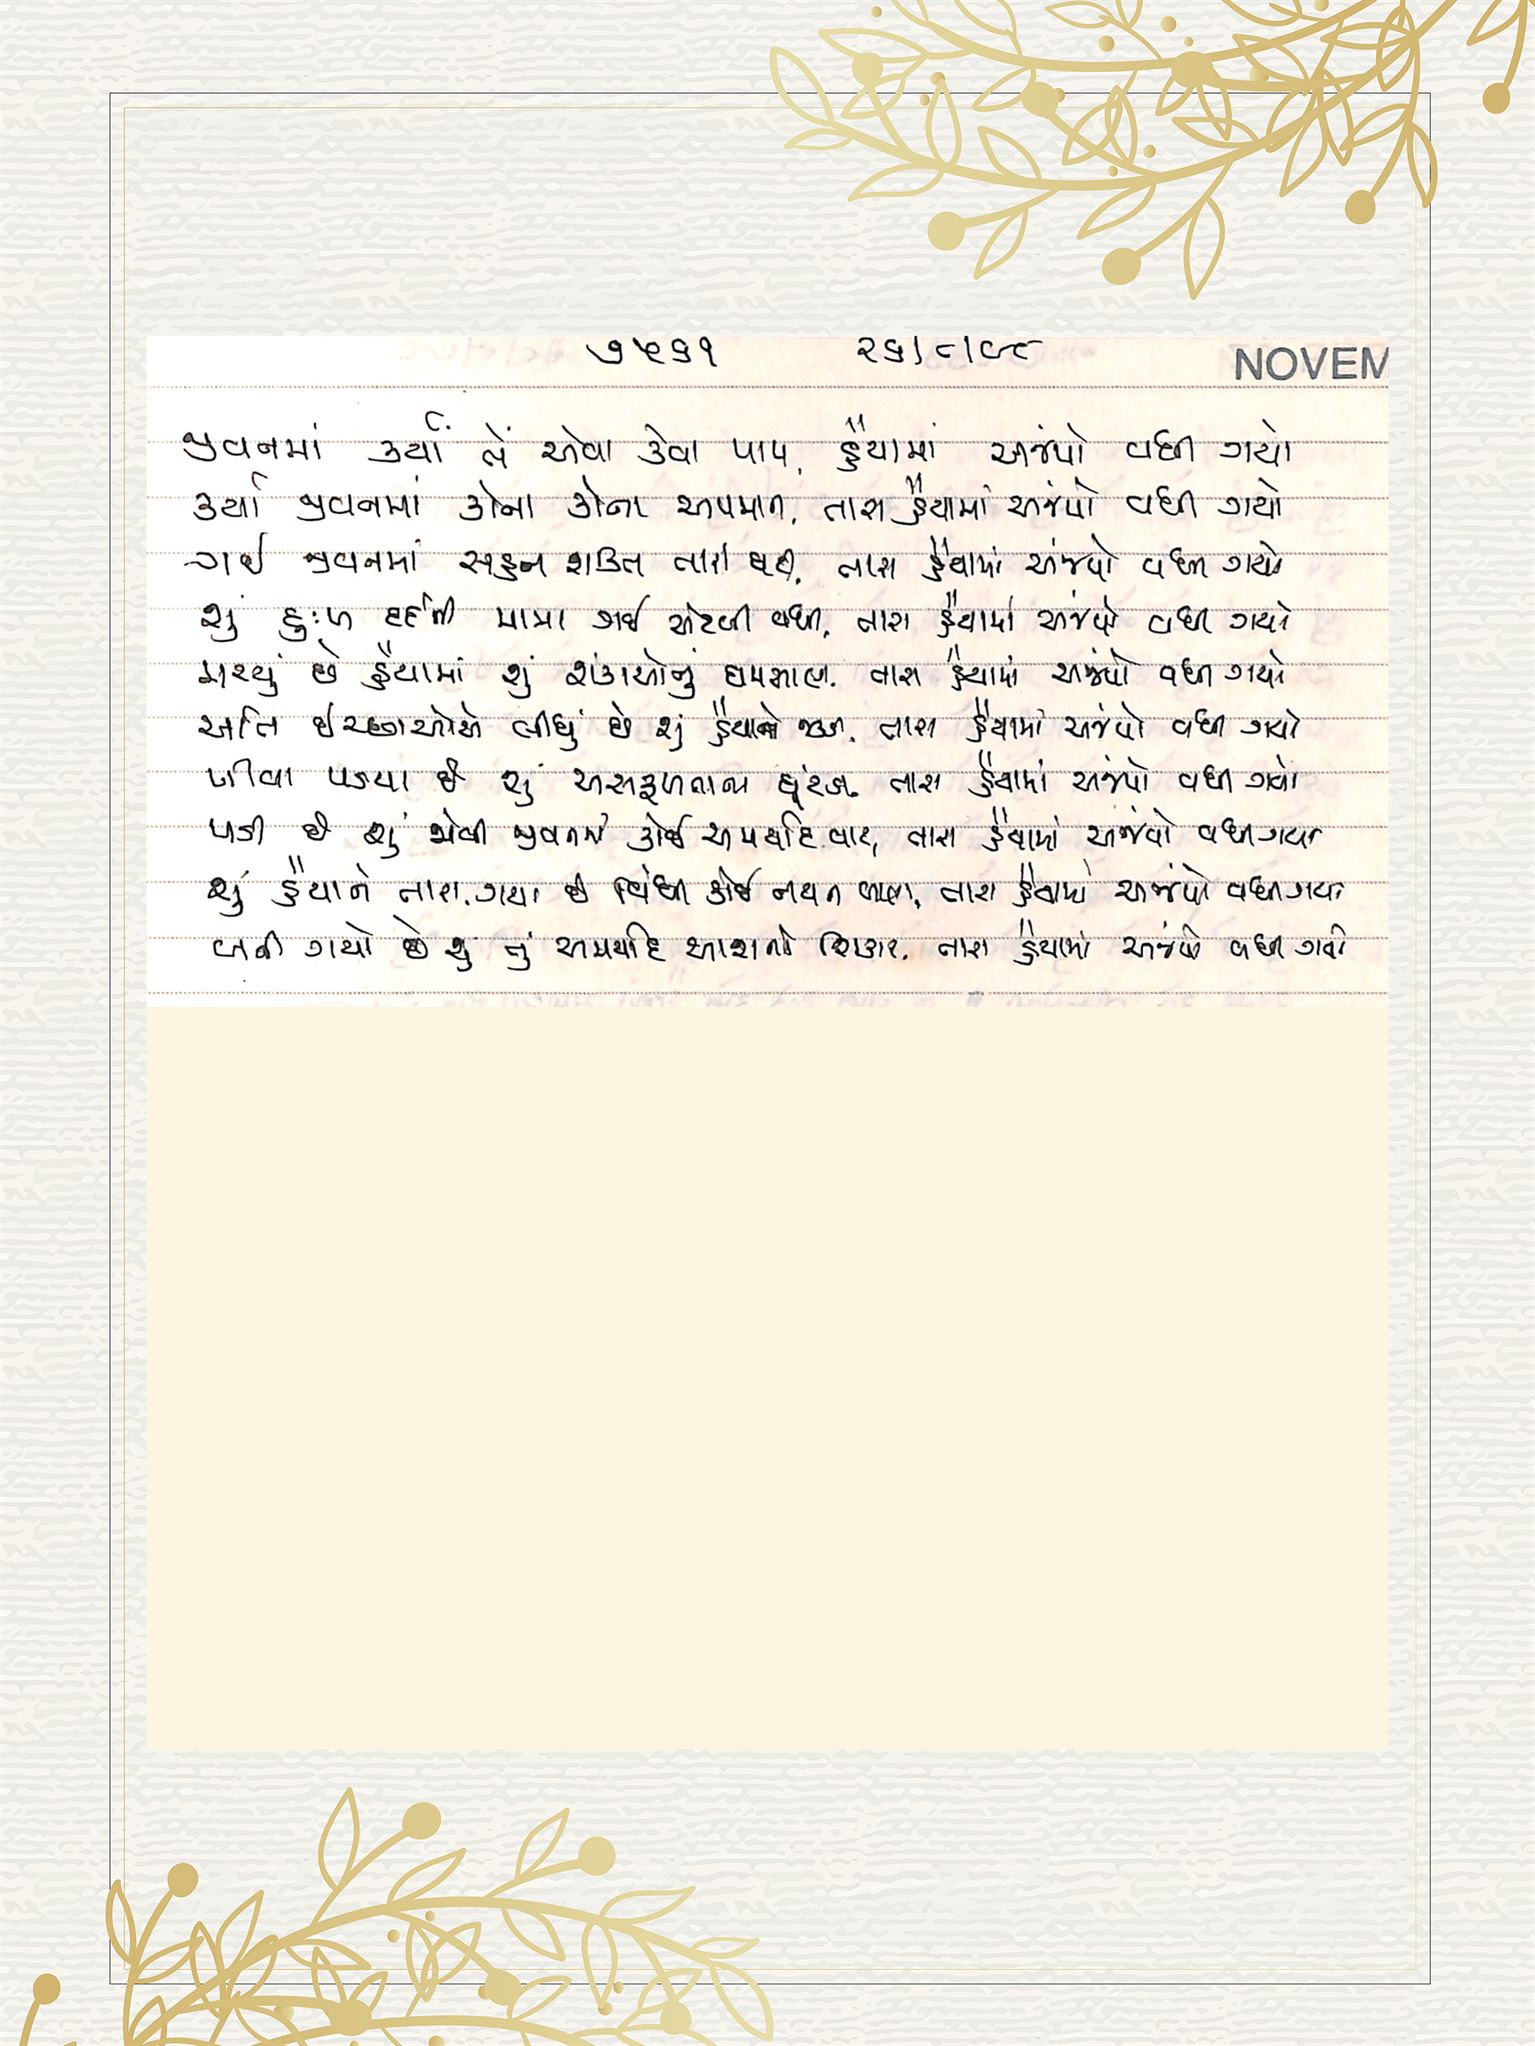 ૭૫૬૧ ૨૬/૮/૯૮ NOVEM
જીવનમાં કર્યાં તેં એવા કેવા પાપ, હૈયામાં અજંપો વધી ગયો
કર્યા જીવનમાં કોના કોના અપમાન, તારા હૈયામાં અજંપો વધી ગયો
ગઈ જીવનમાં સહન શક્તિ તારી ઘટી, તારા હૈયામાં અજંપો વધી ગયો
શું દુઃખ દર્દની માત્રા ગઈ એટલી વધી, તારા હૈયામાં અજંપો વધી ગયો
મચ્યું છે હૈયામાં શું શંકાઓનું ઘમસાણ, તારા હૈયામાં અજંપો વધી ગયો
અતિ ઈચ્છાઓએ લીધું છે શું હૈયાનો કબજો, તારા હૈયામાં અજંપો વધી ગયો
પીવા પડયા છે શું અસફળતાના ઘૂંટડા, તારા હૈયામાં અજંપો વધી ગયો
પડી છે શું એવી જીવનમાં કોઈ અમર્યાદિ વાટ, તારા હૈયામાં અજંપો વધી ગયો
શું હૈયાને તારા ગયા છે વિંધી કોઈ નયન બાણ, તારા હૈયામાં અજંપો વધી ગયો
બની ગયો છે શું તું અમર્યાદિ આશાનો શિકાર, તારા હૈયામાં અજંપો વધી ગયો